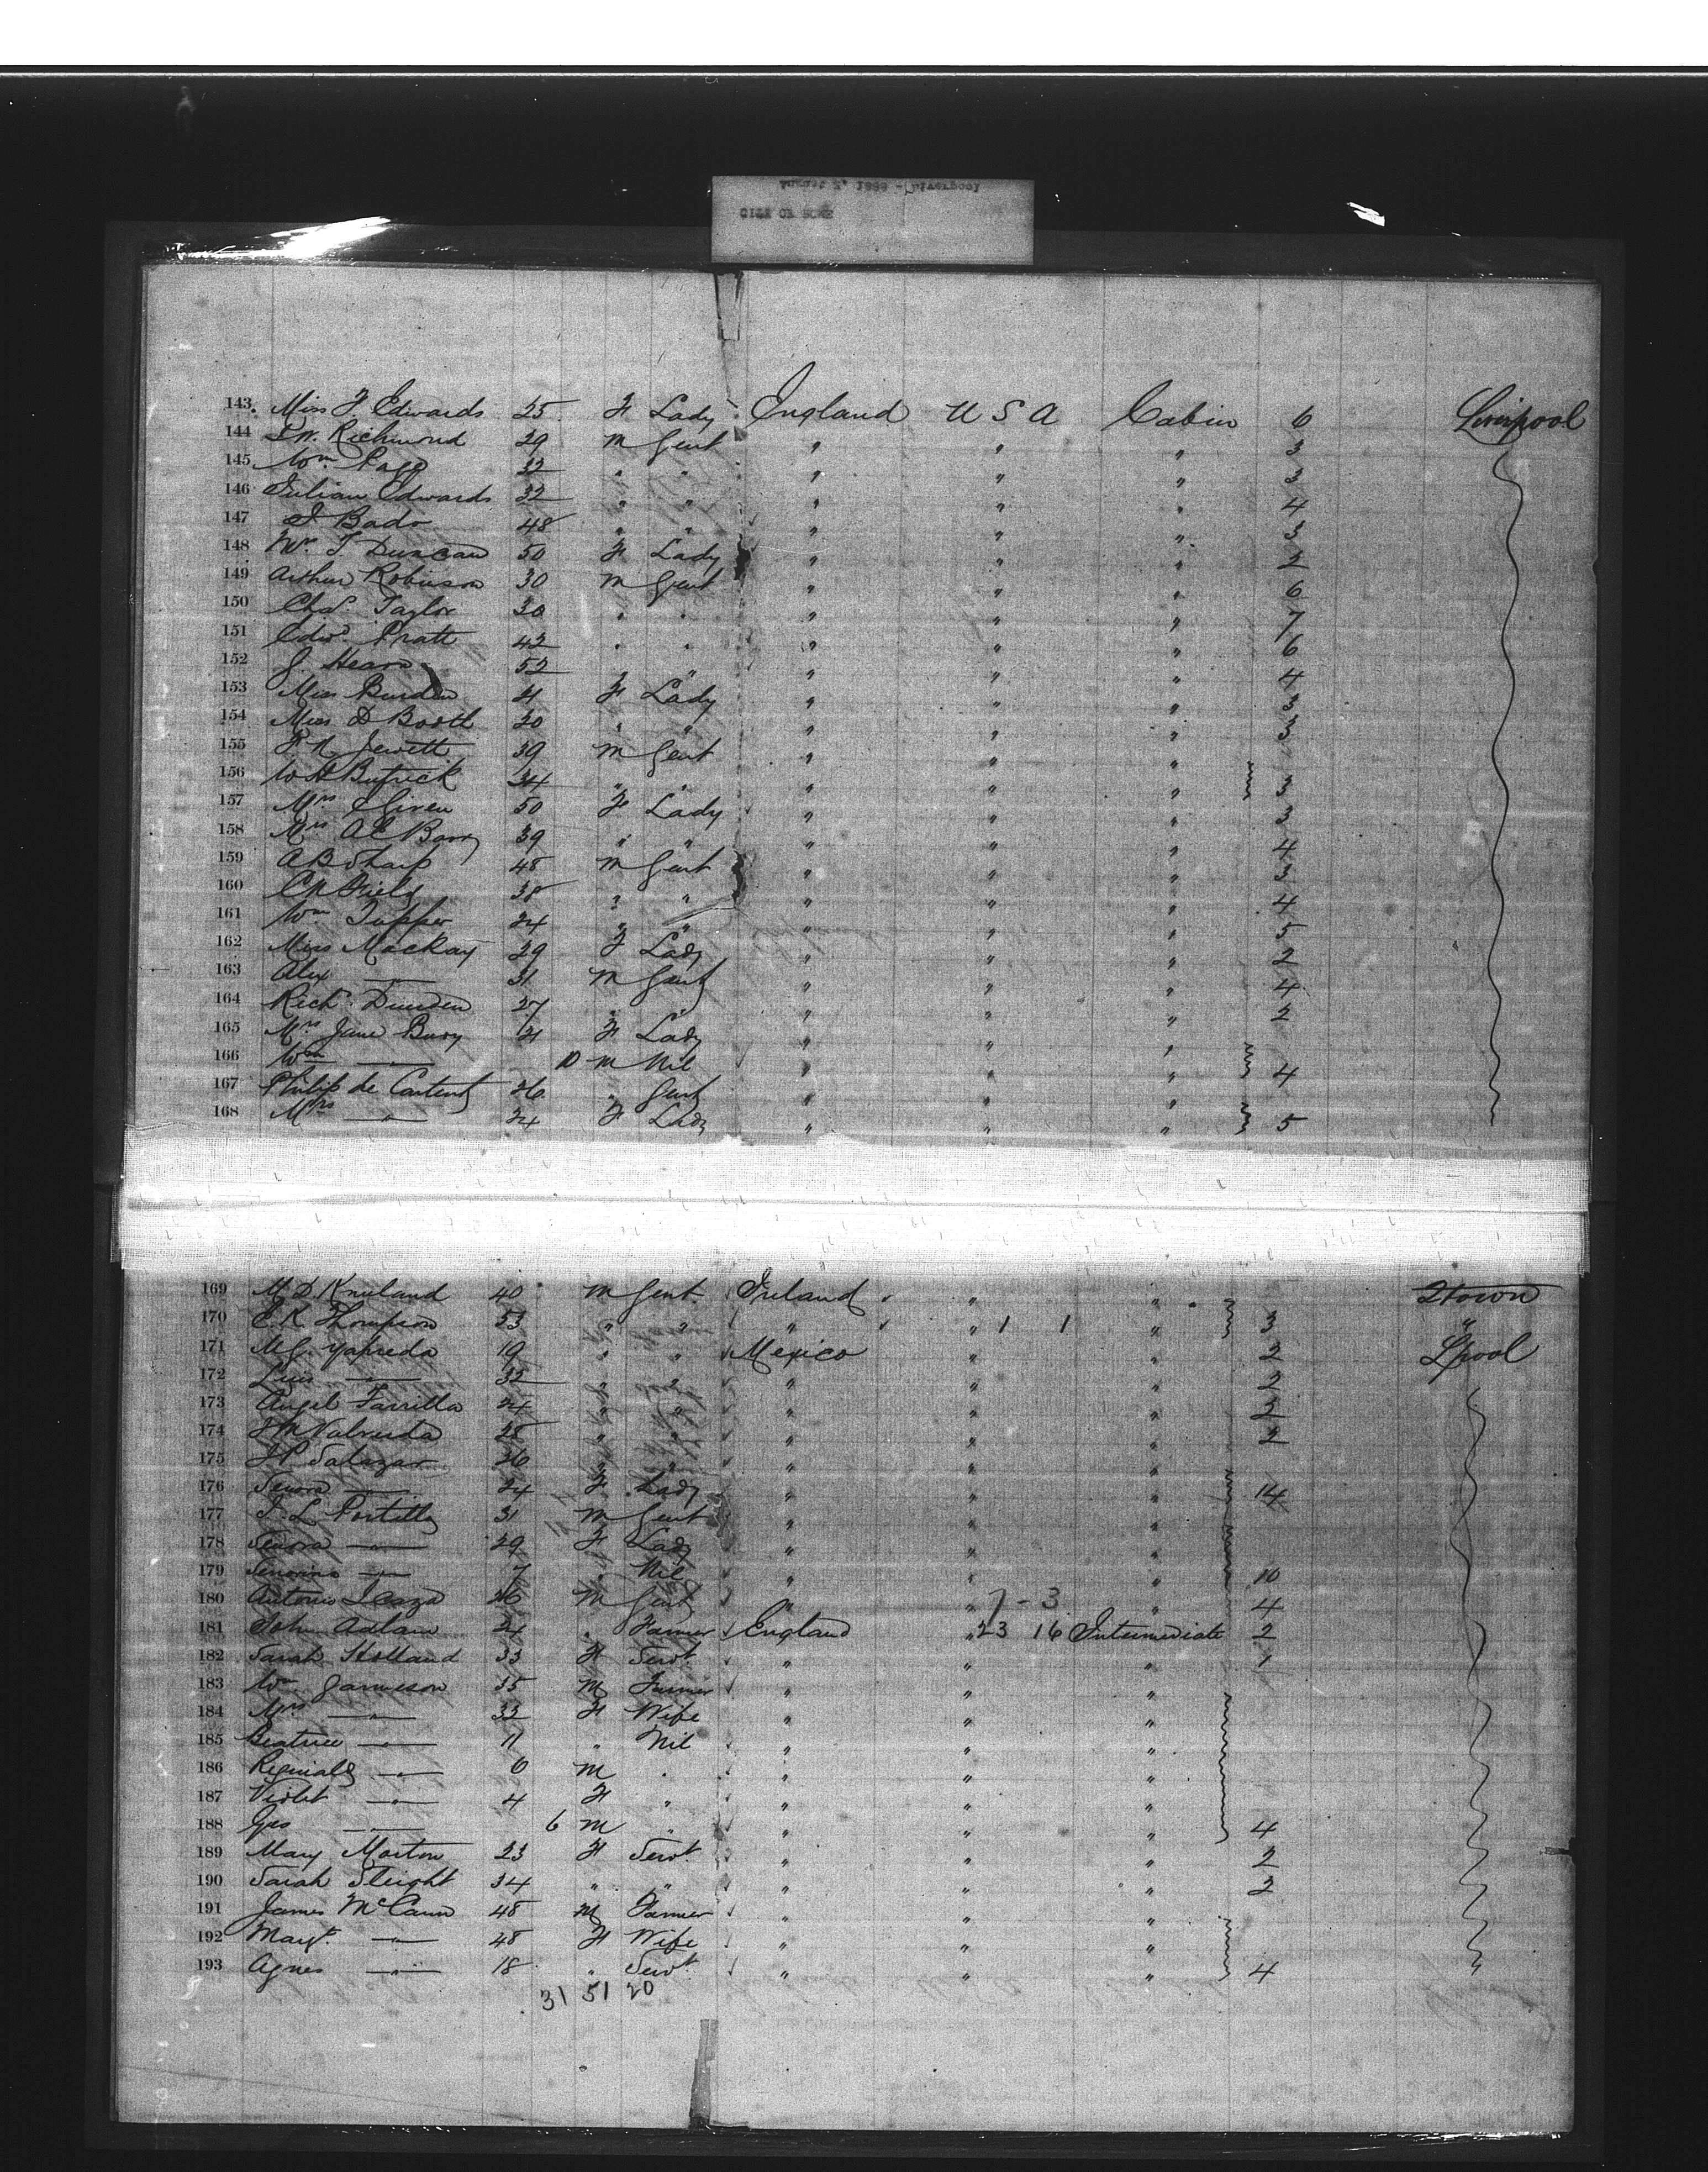 143. Miss F. Edwards 25 F Lady England U S A Cabin 6 Liverpool
144 Richmond 29 M Gent " " " 3
145 Wm. Page 32 " " " " " 3
146 Julian Edwards 32 " " " " " 4
147 Bado 48 " " " " " 3
148 T Duncan 50 F Lady " " " 2
149 Arthur Robinson 30 M Gent " " " 6
150 Chas. Taylor 30 " " " " " 7
151 Edwd. Pratt 42 " " " " " 6
152 J Hearn 52 " " " " " 4
153 Miss Burden F Lady " " " 3
154 Miss D Booth " " " " " 3
155 Jewett 39 M Gent " " "
156 W H Butrick 34 " " " " " 3
157 Mrs Given 50 F Lady " " " 3
158 Mrs A E Barry 39 " " " " " 4
159 A B Sharp 48 M Gent " " " 3
160 Field 38 " " " " " 4
161 Wm Tupper 24 " " " " " 5
162 Miss Mackay 29 F Lady " " " 2
163 Alex —"— 31 M Gent " " " 4
164 Richd. 27 " " " " " 2
165 Mrs Jane Bury F Lady " " "
166 Wm —"— 10 M Nil " " " 4
167 Philip de Carteret 26 " Gent " " "
168 Mrs —"— 24 F Lady " " " 5
169 M D Kneeland 40 M Gent. Ireland " " Qtown
170 E. K Thompson 53 " " " " 1 1 " 3 "
171 19 " " Mexico " " 2 Lpool
172 Luis —"— 32 " " " " " 2
173 Angel 24 " " " " " 2
174 28 " " " " " 2
175 J P Salazar 36 " " " " "
176 Senora —"— 24 F Lady " " " 14
177 J. L Portilla 31 M Gent " " "
178 Senora —"— 29 F Lady " " "
179 —"— 7 " Nil " " " 10
180 Antonio 26 M Gent " " 7-3 " 4
181 John Adlam 24 " Farmer England " 23 16 Intermediate 2
182 Sarah Holland 33 F Servt. " " " 1
183 Wm Jameson 35 M Farmer " " "
184 Mrs —"— 33 F Wife " " "
185 Beatrice —"— 11 " Nil " " "
186 Reginald —"— 6 M " " " "
187 Violet —"— 4 F " " " "
188 Geo —"— 6 M " " " " 4
189 Mary Morton 23 F Servt. " " " 2
190 Sarah Sleight 34 " " " " " 2
191 James McCann 48 M Farmer " " "
192 Margt. —"— 48 F Wife " " "
193 Agnes —"— 18 " Servt. " " " 4
31 51 20